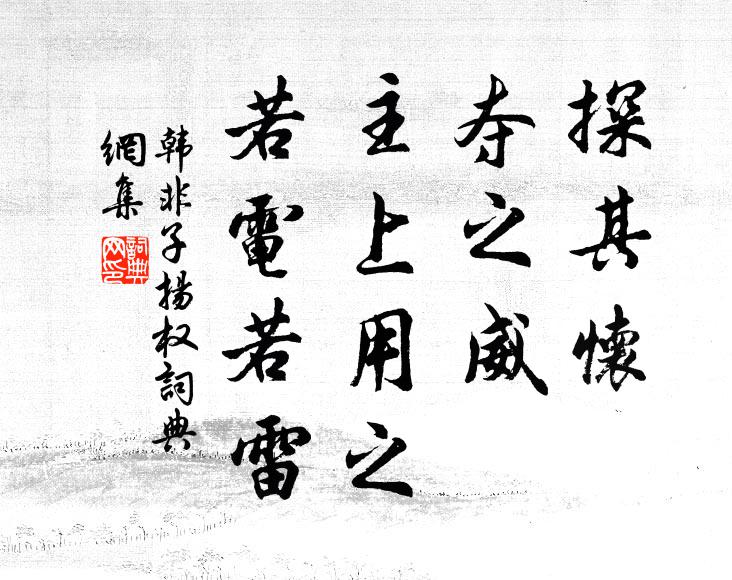 探其懷
夺之威
主上用之
若電若雷
韩非子揚权詞典
網集
詞典
网印